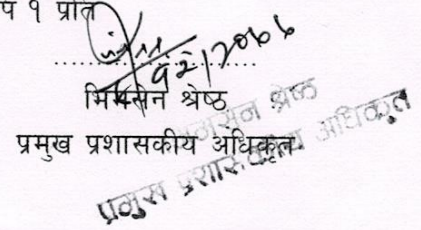 प १ प्रति
भिमसेन श्रेष्ठ
प्रमुख प्रशासकीय अधिकृत
श्रेष्ठ
प्रमुख प्रशासकीय अधिकृत